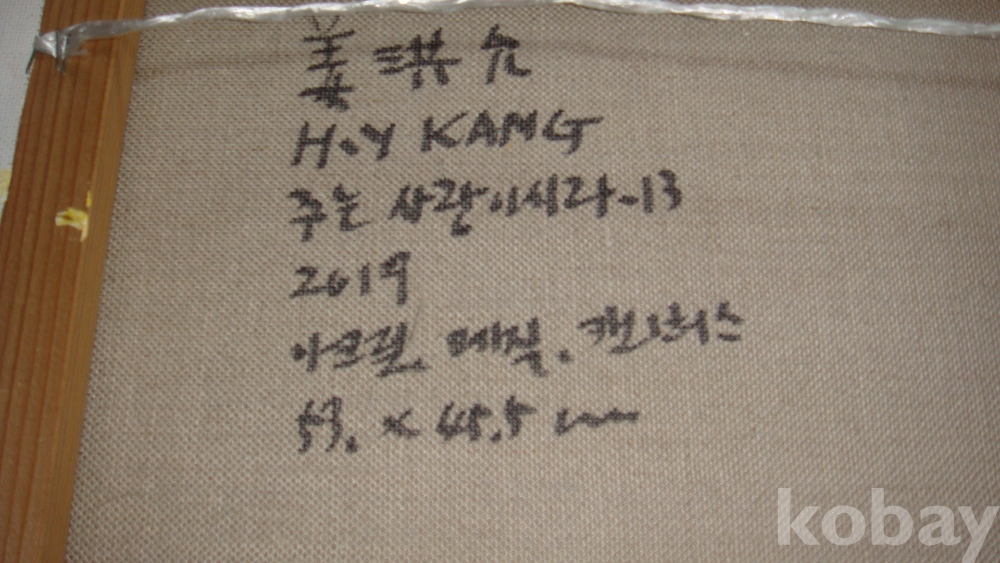 姜琪允
H.Y KANG
주는 사랑이시라-13
2019
아크릴. 메직. 캔버스
53. × 45.5 cm
kobay